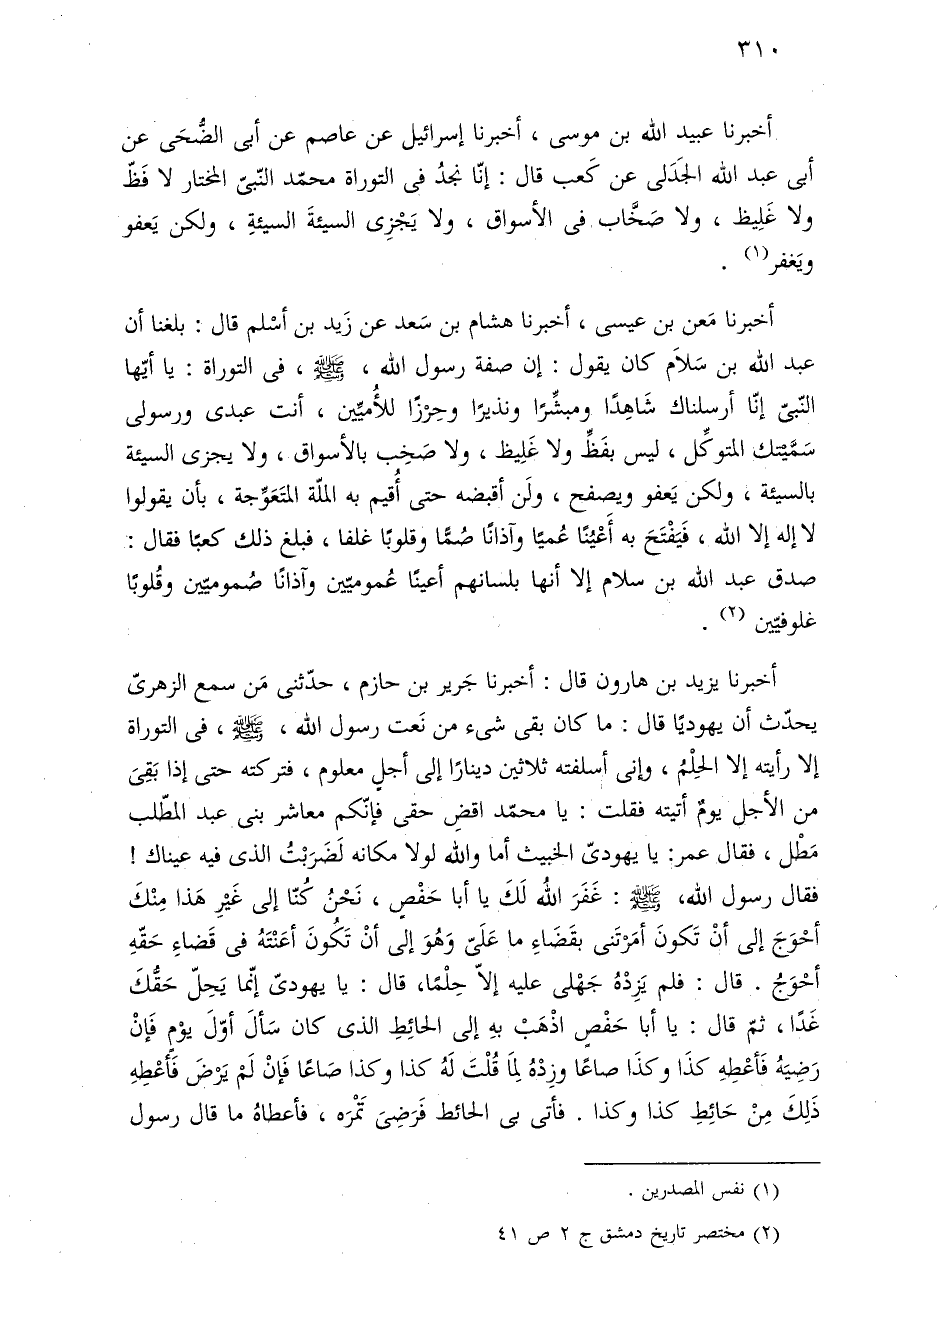 ٣١٠
أخبرنا عبيد الله بن موسى ، أخبرنا إسرائيل عن عاصم عن أبى الضُّحَى عن
أبى عبد الله الجَدَلى عن كَعب قال : إنّا نجدُ فى التوراة محمد النّبىّ المختار لا فَظّ
ولا غَلِيظ ، ولا صَخَّاب فى الأسواق ، ولا يَجْزِى السيئةَ السيئةِ ، ولكن يَعفو
ويَغفر(١) .
أخبرنا مَعن بن عيسى ، أخبرنا هشام بن سَعد عن زَيد بن أسْلم قال : بلغنا أن
عبد الله بن سَلاَم كان يقول : إن صفة رسول الله ، ﷺ ، فى التوراة : يا أيّها
النّبىّ إنّا أرسلناك شَاهِدًا ومبشِّرًا ونذيرًا وحِرْزًا للأُميِّين ، أنت عبدى ورسولى
سَمَّيتك المتوكِّل ، ليس بفَظٍّ ولا غَلِيظ ، ولا صَخِب بالأسواق ، ولا يجزى السيئة
بالسيئة ، ولكن يَعفو ويصفح ، ولَن أقبضه حتى أُقيم به الملّة المتَعَوِّجة ، بأن يقولوا
لا إله إلا الله ، فَيَفْتَحَ به أَعْيُنًا عُميًا وآذانًا صُمًّا وقلوبًا غلفا ، فبلغ ذلك كعبًا فقال :
صدق عبد الله بن سلام إلا أنها بلسانهم أعينًا عُموميّين وآذانًا صُموميّين وقُلوبًا
غلوفيّين (٢) .
أخبرنا يزيد بن هارون قال : أخبرنا جَرير بن حازم ، حدّثنى مَن سمع الزهرىّ
يحدّث أن يهوديًا قال : ما كان بقى شىء من نَعت رسول الله ، ﷺ ، فى التوراة
إلا رأيته إلا الحِلْمُ ، وإنى أسلفته ثلاثين دينارًا إلى أجلٍ معلوم ، فتركته حتى إذا بَقِىَ
من الأجل يومٌ أتيته فقلت : يا محمّد اقضِ حقى فإنّكم معاشر بنى عبد المطّلب
مَطْل ، فقال عمر: يا يهودىّ الخبيث أما والله لولا مكانه لَضَرَبْتُ الذى فيه عيناك !
فقال رسول الله، ﷺ : غَفَرَ اللهُ لَكَ يا أبا حَفْصٍ ، نَحْنُ كُنّا إلى غَيْرِ هَذا مِنْكَ
أحْوَجَ إلى أنْ تَكونَ أمَرْتَنى بقَضَاءِ ما عَلَىّ وَهُوَ إلى أنْ تَكُونَ أعَنْتَهُ فى قَضاءِ حَقّهِ
أحْوَجُ . قال : فلم يَزِدْهُ جَهْلى عليه إلاّ حِلْمًا، قال : يا يهودىّ إنّما يَحِلّ حَقُّكَ
غَدًا ، ثمّ قال : يا أبا حَفْصٍ اذْهَبْ بِهِ إلى الحائِطِ الذى كان سَألَ أوّلَ يوْمٍ فَإنْ
رَضِيَهُ فَأعْطِهِ كذَا وكذَا صاعًا وزِدْهُ لِمَا قُلْتَ لَهُ كذا وكذا صَاعًا فَإنْ لَمْ يَرْضَ فَأعْطِهِ
ذَلِكَ مِنْ حَائِطِ كذا وكذا . فأتى بى الحائط فَرَضِىَ تَمْرَه ، فأعطاهُ ما قال رسول
(١) نفس المصدرين .
(٢) مختصر تاريخ دمشق ج ٢ ص ٤١